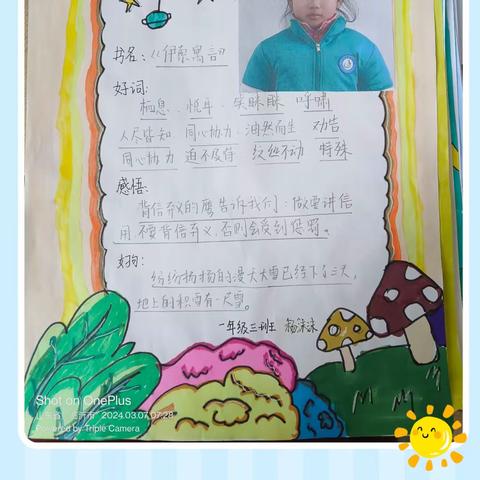 书名：《伊索寓言》
好词：
栖息、悦耳、失眠 呼啸
人尽皆知 同心协力 油然而生 劝告
同心协力 迫不及待 纹丝不动 特殊
感悟：
背信弃义的鹰告诉我们：做要讲信
用不要背信弃义，否则会受到惩罚。
好句：
纷纷扬扬的漫天大雪已经下了三天，
地上的积雪有一尺雪。
一年级三班 杨沫沫
Shot on OnePlus
山东省 2024.03.07 07:28
Powered by Triple Camera